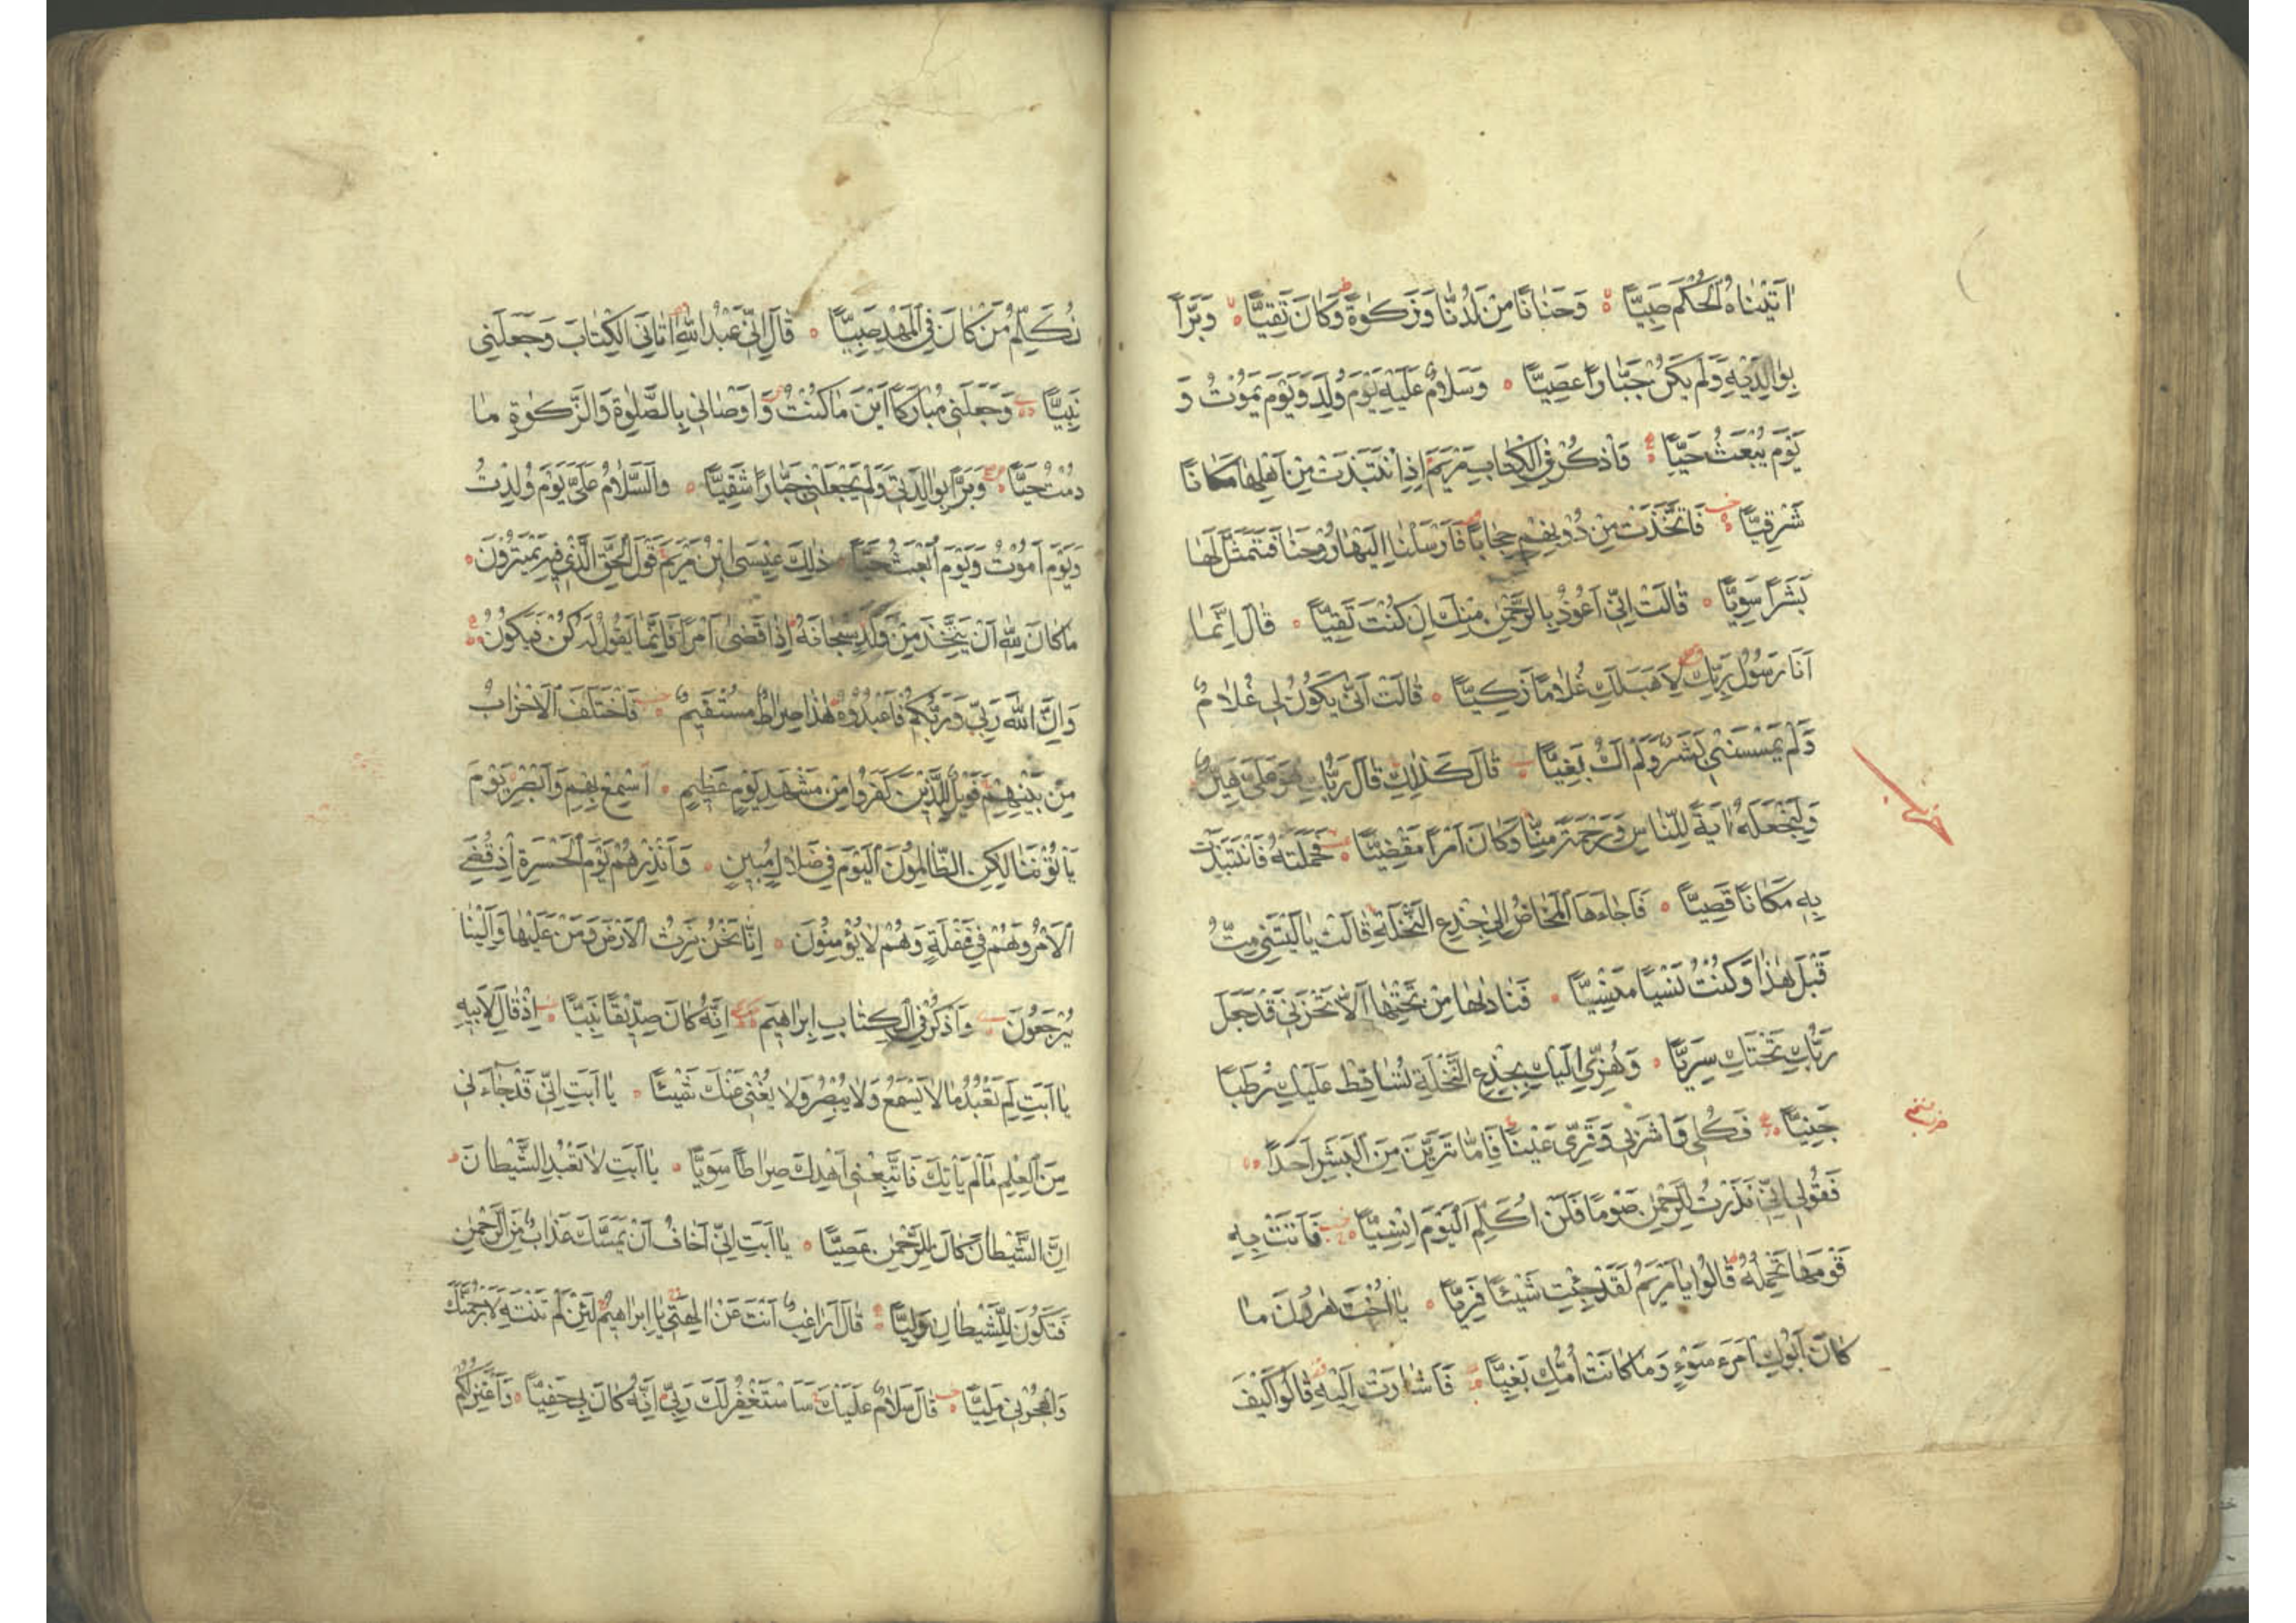 اٰتَيْنَاهُ الْحُكْمَ صَبِيًّا وَحَنَانًا مِنْ لَدُنَّا وَزَكٰوةً وَكَانَ تَقِيًّا وَبَرًّا
بِوَالِدَيْهِ وَلَمْ يَكُنْ جَبَّارًا عَصِيًّا وَسَلَامٌ عَلَيْهِ يَوْمَ وُلِدَ وَيَوْمَ يَمُوْتُ وَ
يَوْمَ يُبْعَثُ حَيًّا وَاذْكُرْ فِي الْكِتَابِ مَرْيَمَ اِذِ انْتَبَذَتْ مِنْ اَهْلِهَا مَكَانًا
شَرْقِيًّا فَاتَّخَذَتْ مِنْ دُوْنِهِمْ حِجَابًا فَاَرْسَلْنَا اِلَيْهَا رُوْحَنَا فَتَمَثَّلَ لَهَا
بَشَرًا سَوِيًّا قَالَتْ اِنِّي اَعُوْذُ بِالرَّحْمٰنِ مِنْكَ اِنْ كُنْتَ تَقِيًّا قَالَ اِنَّمَا
اَنَا رَسُوْلُ رَبِّكِ لِاَهَبَ لَكِ غُلَامًا زَكِيًّا قَالَتْ اَنّٰى يَكُوْنُ لِي غُلَامٌ
وَلَمْ يَمْسَسْنِي بَشَرٌ وَلَمْ اَكُ بَغِيًّا قَالَ كَذٰلِكِ قَالَ رَبُّكِ هُوَ عَلَيَّ هَيِّنٌ
وَلِنَجْعَلَهُ اٰيَةً لِلنَّاسِ وَرَحْمَةً مِنَّا وَكَانَ اَمْرًا مَقْضِيًّا فَحَمَلَتْهُ فَانْتَبَذَتْ
بِهِ مَكَانًا قَصِيًّا فَاَجَاءَهَا الْمَخَاضُ اِلٰى جِذْعِ النَّخْلَةِ قَالَتْ يَا لَيْتَنِي مِتُّ
قَبْلَ هٰذَا وَكُنْتُ نَسْيًا مَنْسِيًّا فَنَادٰىهَا مِنْ تَحْتِهَا اَلَّا تَحْزَنِي قَدْ جَعَلَ
رَبُّكِ تَحْتَكِ سَرِيًّا وَهُزِّي اِلَيْكِ بِجِذْعِ النَّخْلَةِ تُسَاقِطْ عَلَيْكِ رُطَبًا
جَنِيًّا فَكُلِي وَاشْرَبِي وَقَرِّي عَيْنًا فَاِمَّا تَرَيِنَّ مِنَ الْبَشَرِ اَحَدًا
فَقُوْلِي اِنِّي نَذَرْتُ لِلرَّحْمٰنِ صَوْمًا فَلَنْ اُكَلِّمَ الْيَوْمَ اِنْسِيًّا فَاَتَتْ بِهِ
قَوْمَهَا تَحْمِلُهُ قَالُوا يَا مَرْيَمُ لَقَدْ جِئْتِ شَيْئًا فَرِيًّا يَا اُخْتَ هٰرُوْنَ مَا
كَانَ اَبُوْكِ امْرَءَ سَوْءٍ وَمَا كَانَتْ اُمُّكِ بَغِيًّا فَاَشَارَتْ اِلَيْهِ قَالُوا كَيْفَ
نُكَلِّمُ مَنْ كَانَ فِي الْمَهْدِ صَبِيًّا قَالَ اِنِّي عَبْدُ اللّٰهِ اٰتَانِيَ الْكِتَابَ وَجَعَلَنِي
نَبِيًّا وَجَعَلَنِي مُبَارَكًا اَيْنَ مَا كُنْتُ وَاَوْصَانِي بِالصَّلٰوةِ وَالزَّكٰوةِ مَا
دُمْتُ حَيًّا وَبَرًّا بِوَالِدَتِي وَلَمْ يَجْعَلْنِي جَبَّارًا شَقِيًّا وَالسَّلَامُ عَلَيَّ يَوْمَ وُلِدْتُ
وَيَوْمَ اَمُوْتُ وَيَوْمَ اُبْعَثُ حَيًّا ذٰلِكَ عِيْسَى ابْنُ مَرْيَمَ قَوْلَ الْحَقِّ الَّذِي فِيْهِ يَمْتَرُوْنَ
مَا كَانَ لِلّٰهِ اَنْ يَتَّخِذَ مِنْ وَلَدٍ سُبْحَانَهُ اِذَا قَضٰى اَمْرًا فَاِنَّمَا يَقُوْلُ لَهُ كُنْ فَيَكُوْنُ
وَاِنَّ اللّٰهَ رَبِّي وَرَبُّكُمْ فَاعْبُدُوْهُ هٰذَا صِرَاطٌ مُسْتَقِيْمٌ فَاخْتَلَفَ الْاَحْزَابُ
مِنْ بَيْنِهِمْ فَوَيْلٌ لِلَّذِيْنَ كَفَرُوا مِنْ مَشْهَدِ يَوْمٍ عَظِيْمٍ اَسْمِعْ بِهِمْ وَاَبْصِرْ يَوْمَ
يَأْتُوْنَنَا لٰكِنِ الظَّالِمُوْنَ الْيَوْمَ فِي ضَلَالٍ مُبِيْنٍ وَاَنْذِرْهُمْ يَوْمَ الْحَسْرَةِ اِذْ قُضِيَ
الْاَمْرُ وَهُمْ فِي غَفْلَةٍ وَهُمْ لَا يُؤْمِنُوْنَ اِنَّا نَحْنُ نَرِثُ الْاَرْضَ وَمَنْ عَلَيْهَا وَاِلَيْنَا
يُرْجَعُوْنَ وَاذْكُرْ فِي الْكِتَابِ اِبْرَاهِيْمَ اِنَّهُ كَانَ صِدِّيْقًا نَبِيًّا اِذْ قَالَ لِاَبِيْهِ
يَا اَبَتِ لِمَ تَعْبُدُ مَا لَا يَسْمَعُ وَلَا يُبْصِرُ وَلَا يُغْنِي عَنْكَ شَيْئًا يَا اَبَتِ اِنِّي قَدْ جَاءَنِي
مِنَ الْعِلْمِ مَا لَمْ يَأْتِكَ فَاتَّبِعْنِي اَهْدِكَ صِرَاطًا سَوِيًّا يَا اَبَتِ لَا تَعْبُدِ الشَّيْطَانَ
اِنَّ الشَّيْطَانَ كَانَ لِلرَّحْمٰنِ عَصِيًّا يَا اَبَتِ اِنِّي اَخَافُ اَنْ يَمَسَّكَ عَذَابٌ مِنَ الرَّحْمٰنِ
فَتَكُوْنَ لِلشَّيْطَانِ وَلِيًّا قَالَ اَرَاغِبٌ اَنْتَ عَنْ اٰلِهَتِي يَا اِبْرَاهِيْمُ لَئِنْ لَمْ تَنْتَهِ لَاَرْجُمَنَّكَ
وَاهْجُرْنِي مَلِيًّا قَالَ سَلَامٌ عَلَيْكَ سَاَسْتَغْفِرُ لَكَ رَبِّي اِنَّهُ كَانَ بِي حَفِيًّا وَاَعْتَزِلُكُمْ